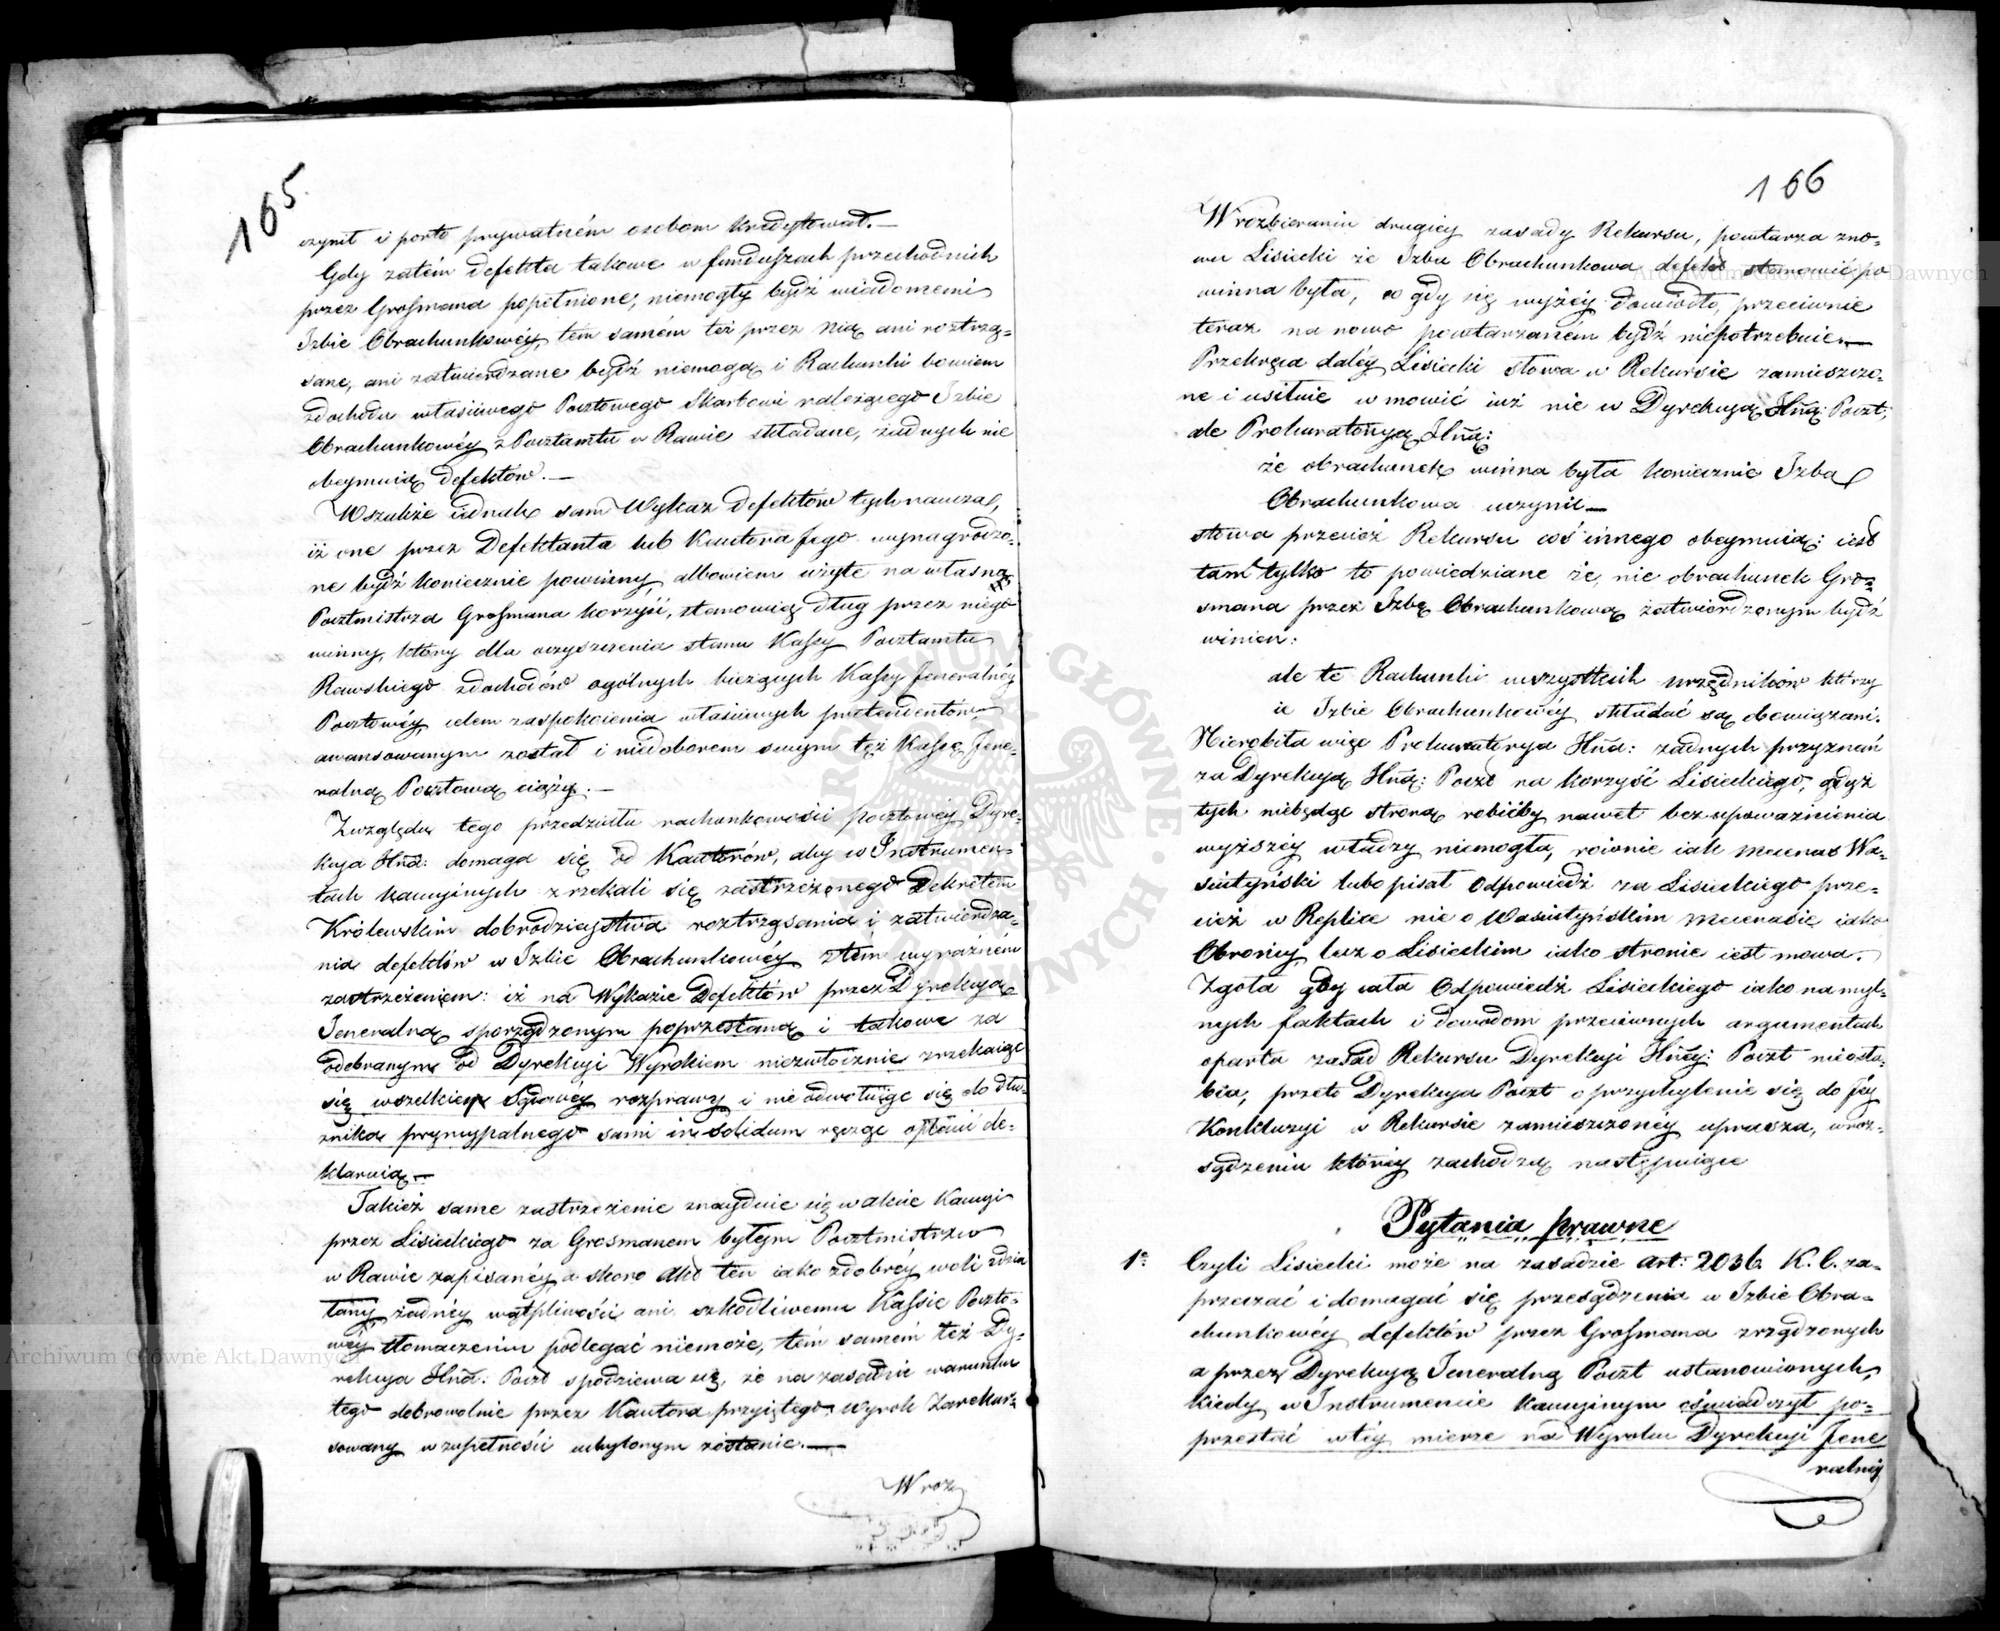 165.
czynił i porto prywatném osobom kredytował.—
Gdy zatém defekta takowe w funduszach przechodnich
przez Grosmana popełnione, niemogły bydź wiadomemi
Izbie Obrachunkowéy, tém samém też przez nią ani roztrzą-
sane, ani zatwierdzane bydź niemogą i Rachunki bowiem
zdochodu właściwego Pocztowego Skarbowi należącego Izbie
Obrachunkowéy z Pocztamtu w Rawie składane, żadnych nie
obeymuią defektów.—
Wszakże iednak sam Wykaz defektów tych naucza,
iż one przez Defektanta lub Kautora Jego wynagrodzo-
ne bydź koniecznie powinny, albowiem użyte na własną
Pocztmistrza Grosmana korzyść, stanowią dług przez niego
winny, który dla oczyszczenia stanu Kassy Pocztamtu
Rawskiego zdochodów ogólnych bieżących Kassy Jeneralnéy
Pocztowéy celem zaspokoienia właściwych pretendentów
awansowanym został i niedoborem swym też Kassę Jene-
ralną Pocztową ciąży.—
Zwzględu tego przedziału rachunkowości pocztowéy Dyre-
kcya Jlna: domaga się od Kautorów, aby w Instrumen-
tach kaucyinych zrzekali się zastrzeżonego Dekretem
Królewskim dobrodzieystwa roztrząsania i zatwierdza-
nia defektów w Izbie Obrachunkowéy z tém wyraźném
zastrzeżeniem: iż na Wykazie Defektów przez Dyrekcyą
Jeneralną sporządzonym poprzestaną i takowe za
odebranym od Dyrekcyi Wyrokiem niezwłocznie zrzekaiąc
się wszelkiey Sądowey rozprawy i nie odwołuiąc się do dłu-
żnika pryncypalnego sami in solidum ręcząc opłacić de-
klaruią.—
Takież same zastrzeżenie znayduie się w akcie Kaucyi
przez Lisieckiego za Grosmanem byłym Pocztmistrzem
w Rawie zapisanéy, a skoro Akt ten iako zdobréy woli zdzia
łany żadnéy wątpliwości ani szkodliwemu Kassie Poczto-
wéy tłomaczeniu podlegać niemoże, tém samém też Dy-
rekcya Jlna: Poczt spodziewa się, że na zasadzie warunku
tego dobrowolnie przez Kautora przyiętego Wyrok Zarekur-
sowany w zupełności uchylonym zostanie.—
W roz
166
W rozbieraniu drugiéy zasady Rekursu, powtarza zno-
wu Lisiecki że Izba Obrachunkowa defekt stanowić po
winna była, co gdy się wyżéy dowiodło, przeciwnie
teraz na nowo powtarzaném bydź niepotrzebuie.—
Przekręca daléy Lisiecki słowa w Rekursie zamieszczo-
ne i usiłuie wmówić iuż nie w Dyrekcyą Jlną: Poczt,
ale Prokuratoryą Jlną:
że obrachunek winna była koniecznie Izba
Obrachunkowa uczynić—
słowa przecież Rekursu coś innego obeymuią: iest
tam tylko to powiedziane że, nie obrachunek Gro-
smana przez Izbę Obrachunkową zatwierdzonym bydź
winien:
ale te Rachunki wszystkich urzędników którzy
ie Izbie Obrachunkowéy składać są obowiązani.
Nierobiła więc Prokuratorya Jlna: żadnych przyznań
za Dyrekcyą Jlną: Poczt na korzyść Lisieckiego, gdyż
tych niebędąc stroną robićby nawet bez upoważnienia
wyższéy władzy niemogła, równie iak Mecenas Wa-
siutyński lubo pisał Odpowiedź za Lisieckiego prze-
cież w Replice nie o Wasiutyńskim Mecenasie iako
Obrońcy lecz o Lisieckim iako stronie iest mowa.
Zgoła gdy cała Odpowiedź Lisieckiego iako na myl-
nych faktach i dowodom przeciwnych argumentach
oparta zasad Rekursu Dyrekcyi Jlnéy: Poczt nieosła-
bia, przeto Dyrekcya Poczt o przychylenie się do Jéy
Konkluzyi w Rekursie zamieszczonéy uprasza, w roz-
sądzeniu któréy zachodzą następuiące
Pytania prawne
1o Czyli Lisiecki może na zasadzie art: 2036 K. C. za-
przeczać i domagać się przesądzenia w Izbie Obra-
chunkowéy defektów przez Grosmana zrządzonych
a przez Dyrekcyą Jeneralną Poczt ustanowionych,
kiedy w Instrumencie kaucyinym oświadczył po-
przestać w téy mierze na Wyroku Dyrekcyi Jene
ralnéy